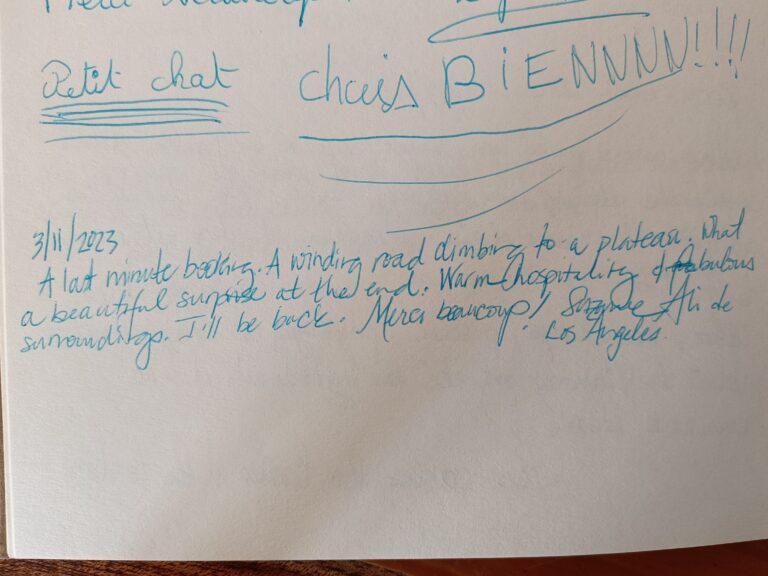 Petit chat chuis BIENNNN!!!!
3/11/2023
A last minute booking. A winding road climbing to a plateau. What
a beautiful surprise at the end. Warm hospitality & fabulous
surroundings. I'll be back. Merci beaucoup! Suzanne Ali de
Los Angeles.